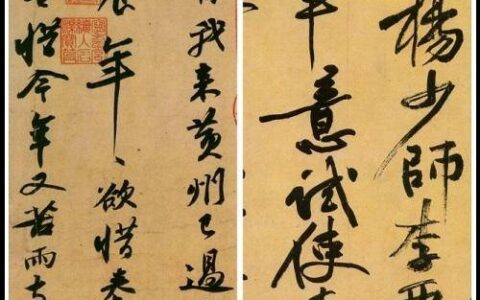 自我来黃州已過
食年、欲惜春
容惜今年又苦雨
楊少師李西
意試使